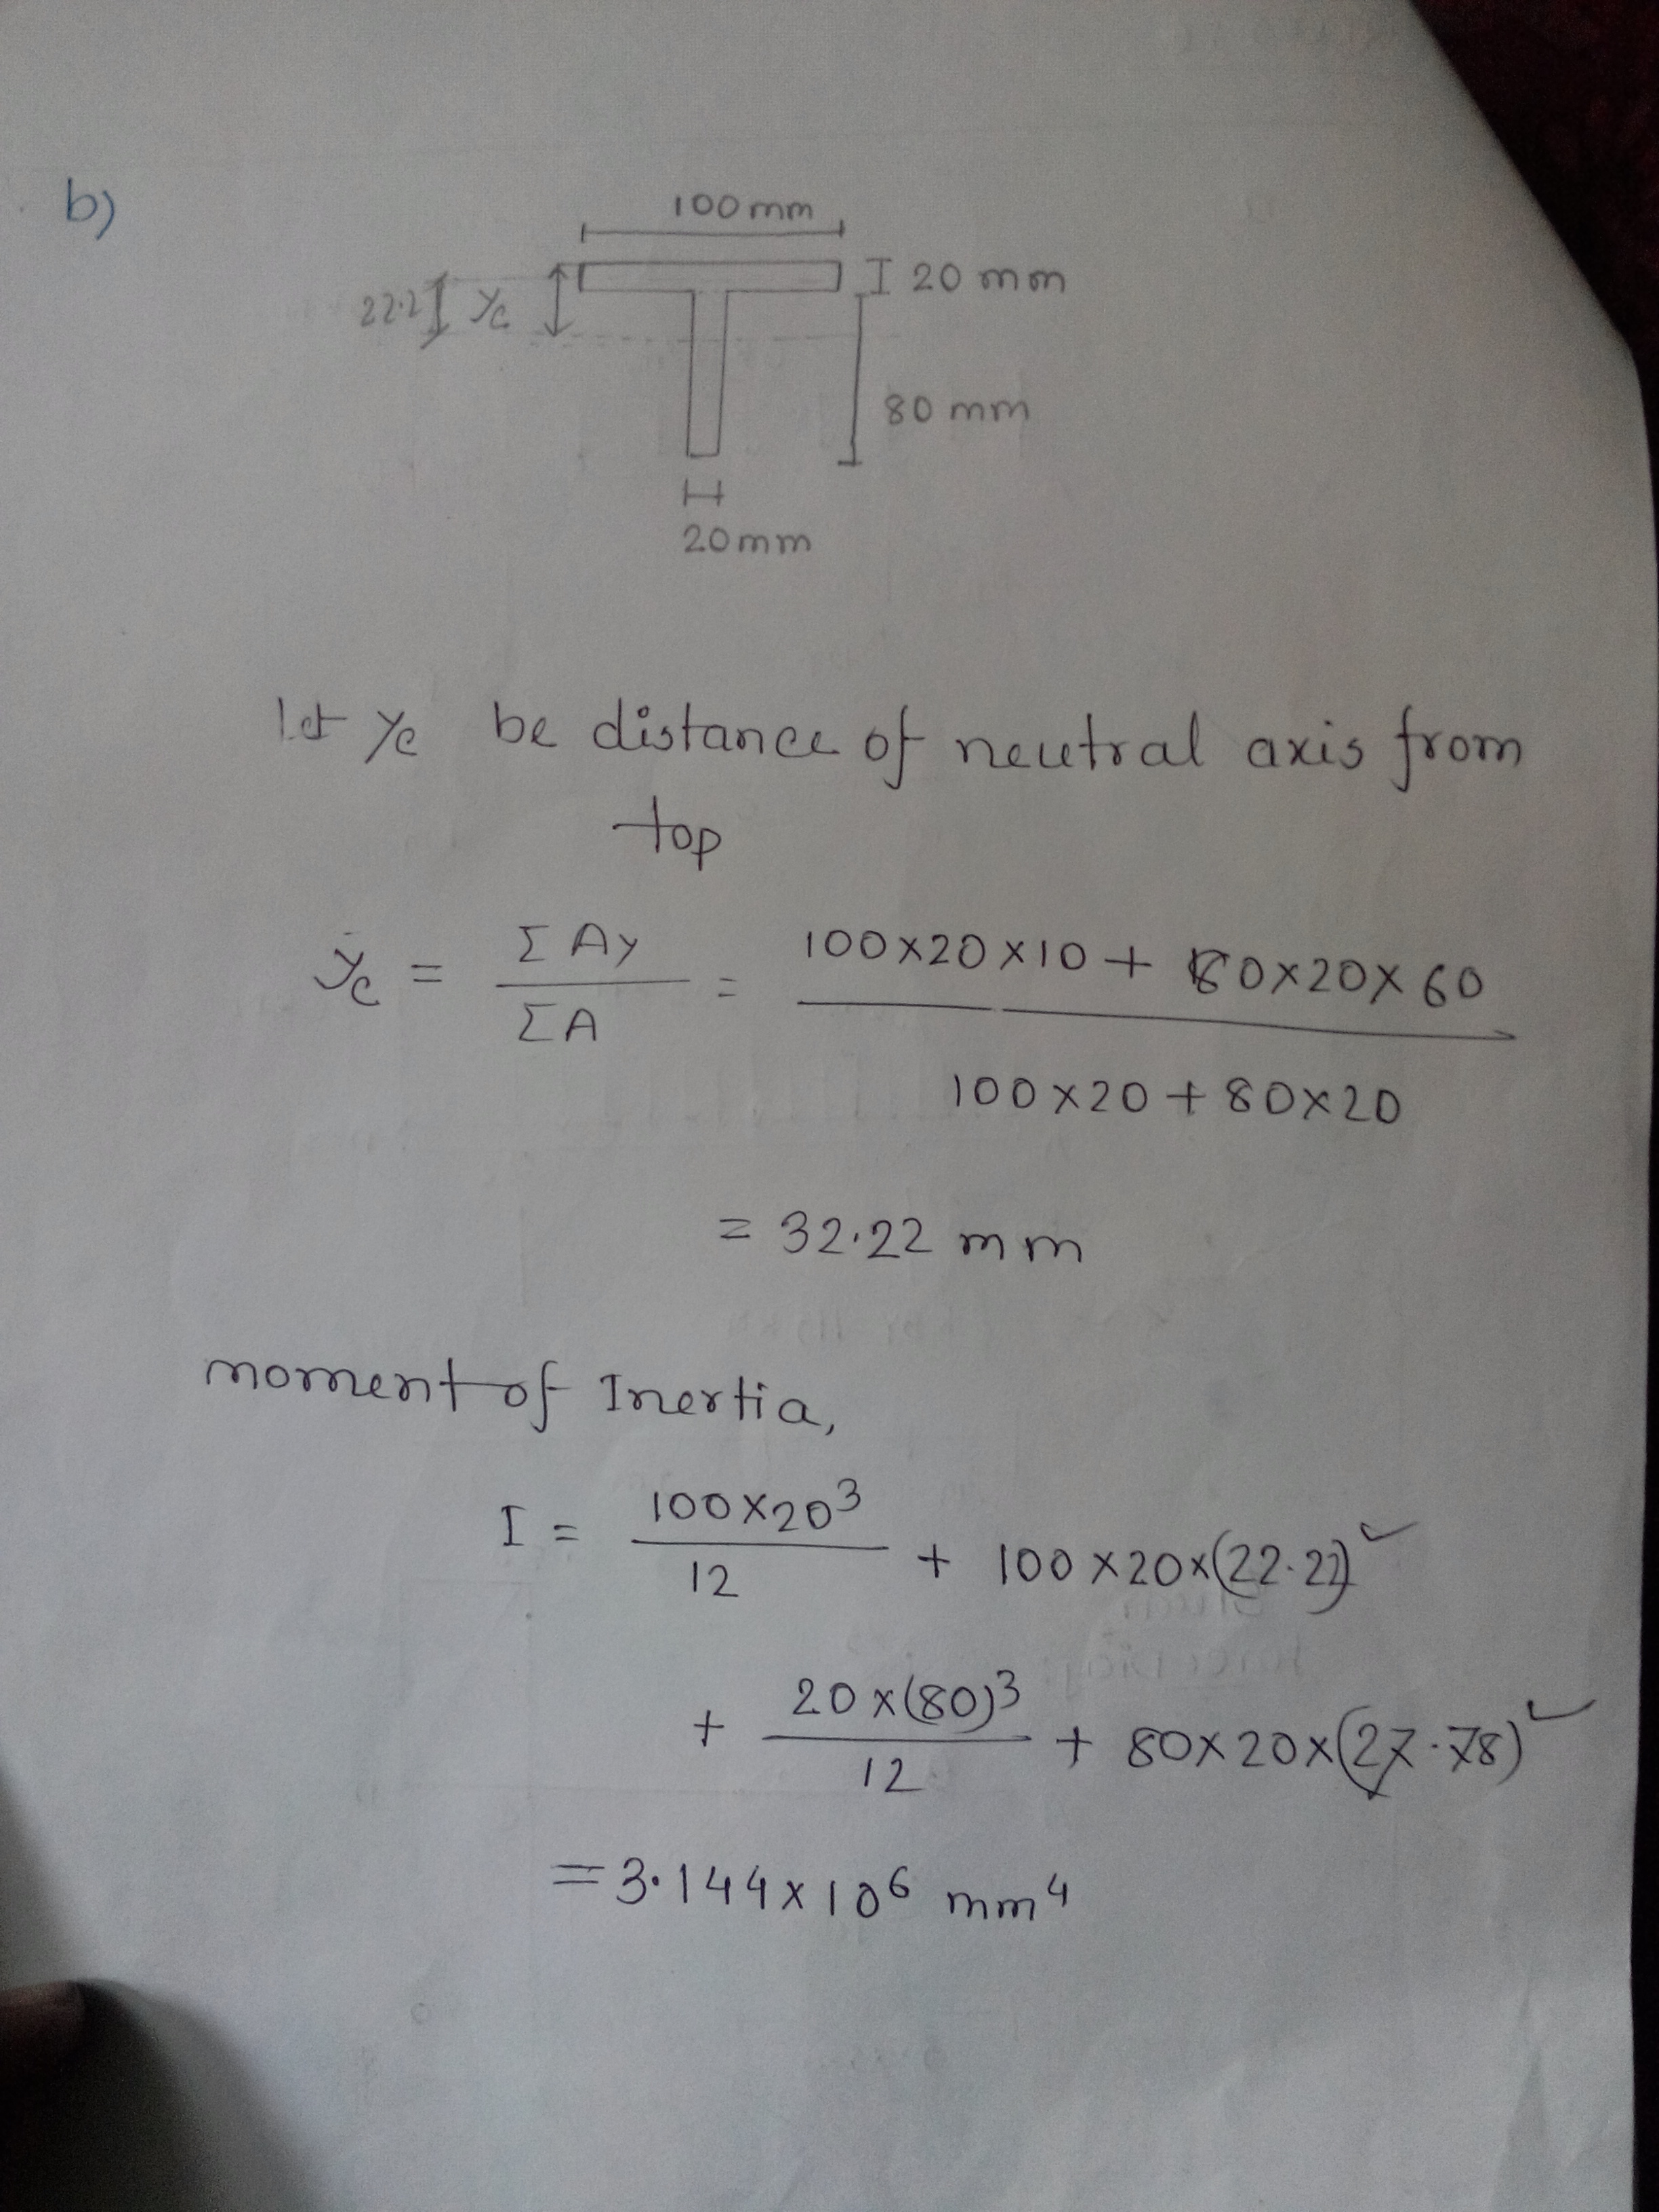 b)
100mm
20 mm
22.2 yc
80 mm
20mm
let yc be distance of neutral axis from
top
yc = ΣAy / ΣA = (100×20×10 + 80×20×60) / (100×20 + 80×20)
= 32.22 mm
moment of Inertia,
I = 100×20³ / 12 + 100×20×(22.22)²
+ 20×(80)³ / 12 + 80×20×(27.78)²
= 3.144×10⁶ mm⁴